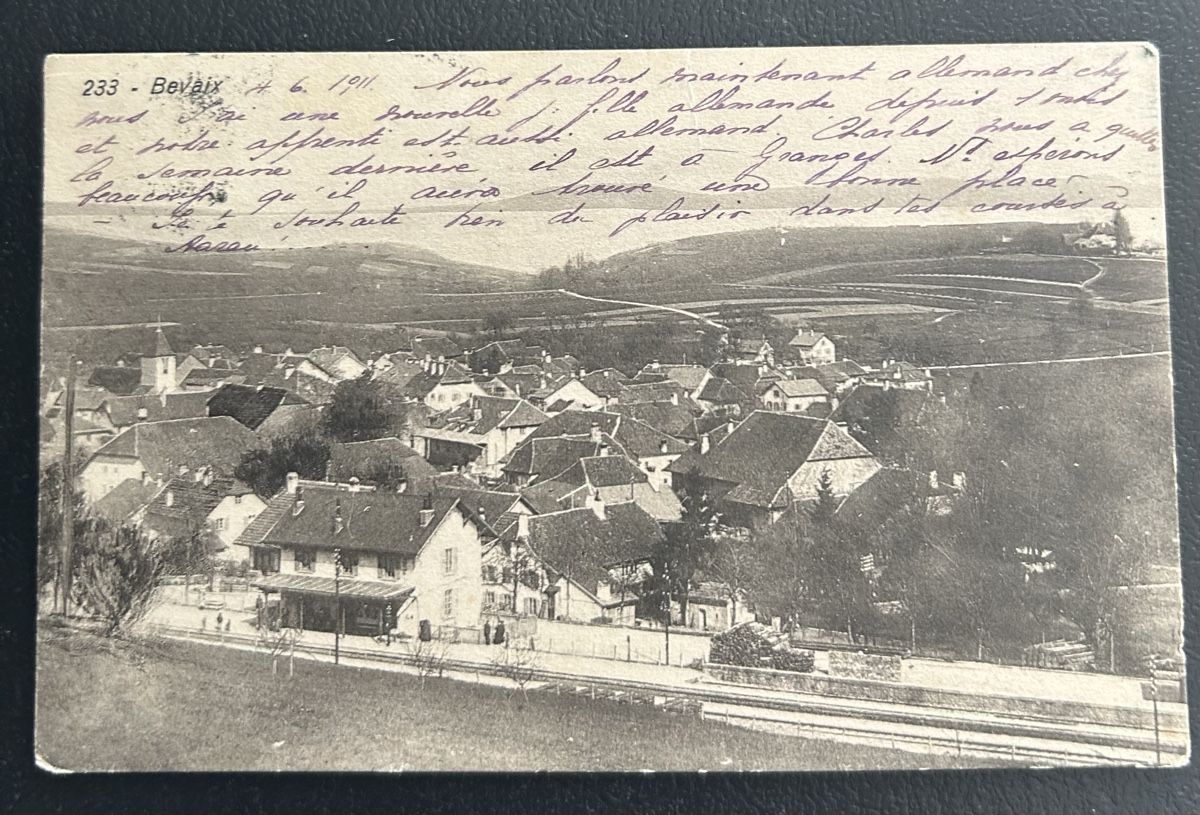 233 - Bevaix 4. 6. 1911. Nous parlons maintenant allemand chez
nous j'ai une nouvelle j. fille allemande depuis
et notre apprenti est aussi allemand. Charles nous a quittés
la semaine dernière il est à Granges. Ns espérons
beaucoup qu'il aura trouvé une bonne place
- Je te souhaite bien du plaisir dans tes courses à
Aarau.